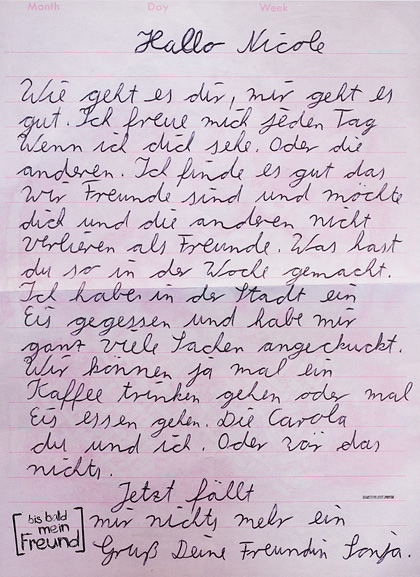 Month Day Week
Hallo Nicole
Wie geht es dir, mir geht es
gut. Ich freue mich jeden Tag
Wenn ich dich sehe. Oder die
anderen. Ich finde es gut das
Wir Freunde sind und möchte
dich und die anderen nicht
verlieren als Freunde. Was hast
du so in der Woche gemacht.
Ich habe in der Stadt ein
Eis gegessen und habe mir
ganz viele Sachen angeckuckt.
Wir können ja mal ein
Kaffee trinken gehen oder mal
Eis essen gehen. Die Carola
du und ich. Oder wär das
nichts.
Jetzt fällt
mir nichts mehr ein
Gruß Deine Freundin Sonja.
bis bald
mein
Freund